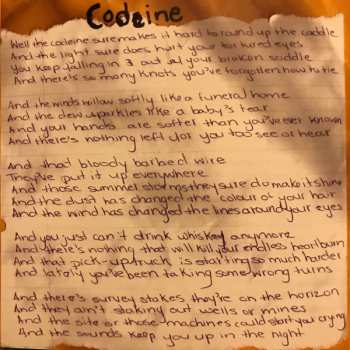 Codeine
Well the codeine sure makes it hard to round up the cattle
And the light sure does hurt your tortured eyes
You keep falling in & out of your broken saddle
And there's so many knots you've forgotten how to tie
And the winds billow softly like a funeral home
And the dew sparkles like a baby's tear
And your hands are softer than you've ever known
And there's nothing left for you too see or hear
And that bloody barbed wire
They've put it up everywhere
And those summer storms they sure do make it shine
And the dust has changed the colour of your hair
And the wind has changed the lines around your eyes
And you just can't drink whiskey anymore
And there's nothing that will kill your endless heartburn
And that pick-up truck is starting so much harder
And lately you've been taking some wrong turns
And there's survey stakes they're on the horizon
And they ain't staking out wells or mines
And the site of those machines could start you crying
And the sounds keep you up in the night